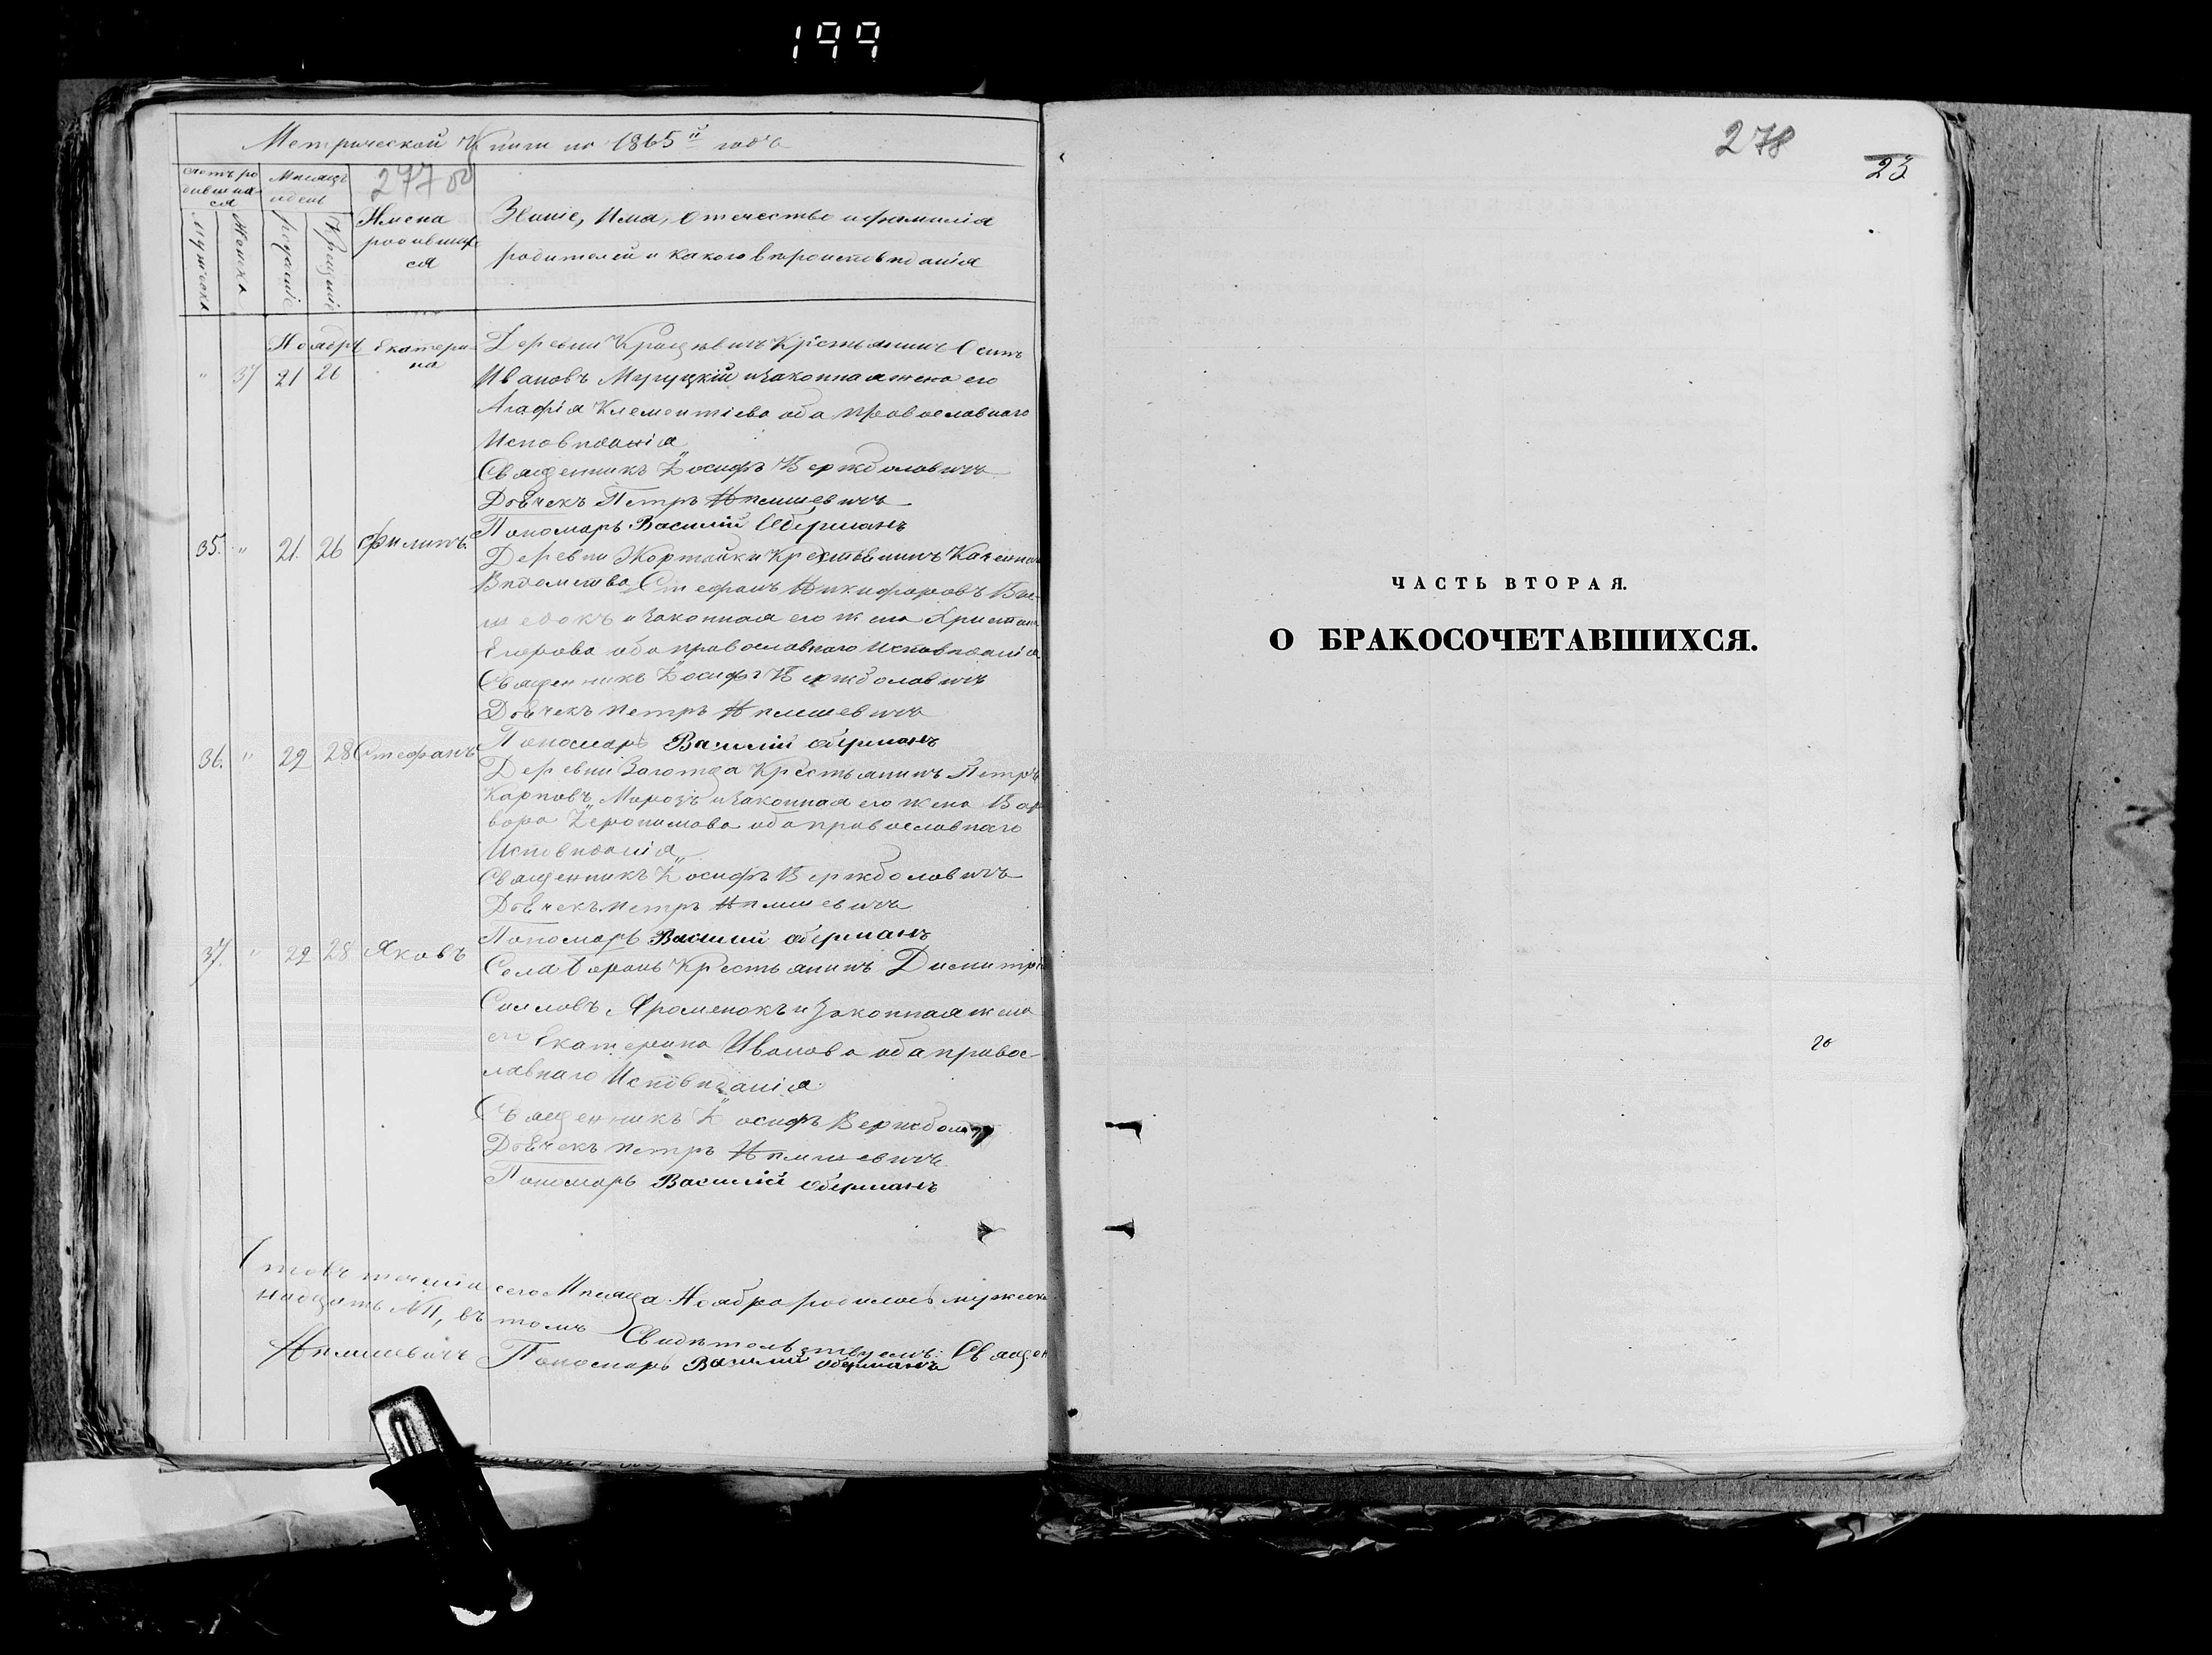 199
Метрической Книги на 1865й годъ
277 об
Счетъ ро
дивших
ся
Мужеска
Женска
Месяцъ
и день
рождение
Крещение
Имена
родивших
ся
Звание, Имя, Отечество и фамилия
родителей и какого вероисповедания
Ноябрь
" 37 21 26 Екатери
на
Деревни Крестьянинъ Осипъ
Ивановъ Муруцкій и законная жена его
Агафія Клементіева оба православнаго
Исповѣданія
Священникъ Іосифъ Вержболовичъ
Дьячекъ Петръ Нѣмшевичъ
Пономарь Василій Оберманъ
35. " 21. 26 Филипъ.
Деревни Жортайки Крестьянинъ Казеннаго
Вѣдомства Стефанъ Никифоровъ
и законная его жена Христина
Егорова оба православнаго исповѣданія
Священникъ Іосифъ Вержболовичъ
Дьячекъ Петръ Нѣмшевичъ
Пономарь Василій Оберманъ
36. " 22 28 Стефанъ
Деревни Крестьянинъ Петръ
Карповъ Морозъ и законная его жена Вар
вара Іеронимова оба православнаго
Исповѣданія
Священникъ Іосифъ Вержболовичъ
Дьячекъ Петръ Нѣмшевичъ
Пономарь Василій Оберманъ
37. " 22 28 Яковъ
Села Борань Крестьянинъ Димитрій
и законная жена
его Екатерина Иванова оба правос
лавнаго Исповѣданія.
Священникъ Іосифъ Вержболов
Дьячекъ Петръ Нѣмшевичъ
Пономарь Василій Оберманъ
сего Мѣсяца Ноября родилось мужеска
въ томъ Свидѣтельствуемъ: Священ
Нѣмшевичъ Пономарь Василій Оберманъ
278
23
ЧАСТЬ ВТОРАЯ.
О БРАКОСОЧЕТАВШИХСЯ.